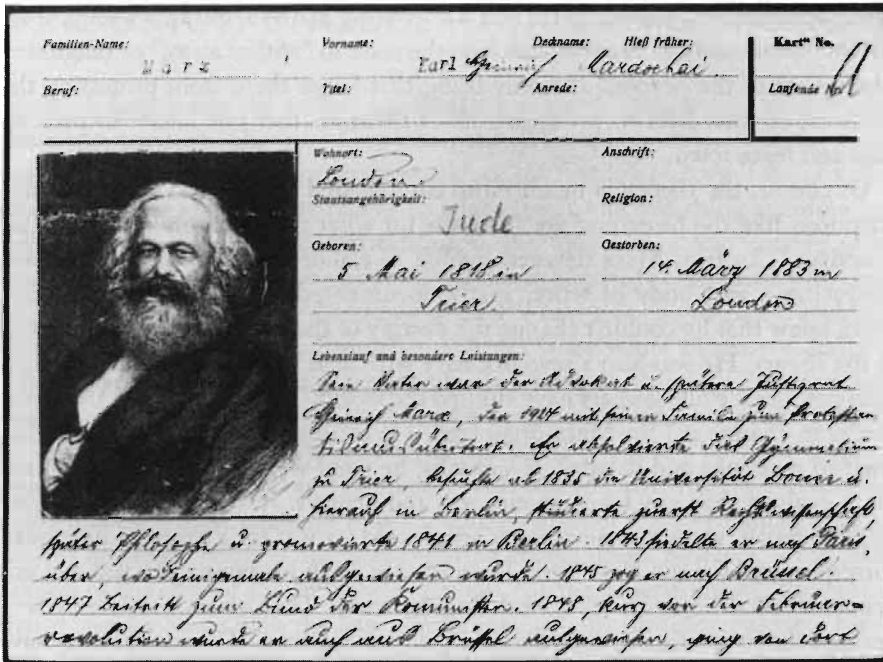 Familien-Name: Vorname: Deckname: Hieß früher: Kart" No.
Marx Karl Heinrich Mardochai
Beruf: Titel: Anrede: Laufende Nr.
Wohnort: Anschrift:
London
Staatsangehörigkeit: Religion:
Jude
Geboren: Gestorben:
5 Mai 1818 in 14. März 1883 in
Trier London
Lebenslauf und besondere Leistungen:
Sein Vater war der Advokat u. spätere Justizrat
Heinrich Marx, der 1924 mit seiner Familie zum Protestan
tismus übertrat. Er absolvierte das Gymnasium
zu Trier, besuchte ab 1835 die Universität Bonn u.
hierauf in Berlin, studierte zuerst Rechtswissenschaft,
später Philosophie u. promovierte 1841 in Berlin. 1843 siedelte er nach Paris
über, wo ausgewiesen wurde. 1845 zog er nach Brüssel.
1847 Beitritt zum Bund der Komunisten. 1848, kurz vor der Februar=
revolution wurde er auch aus Brüssel ausgewiesen, ging von dort